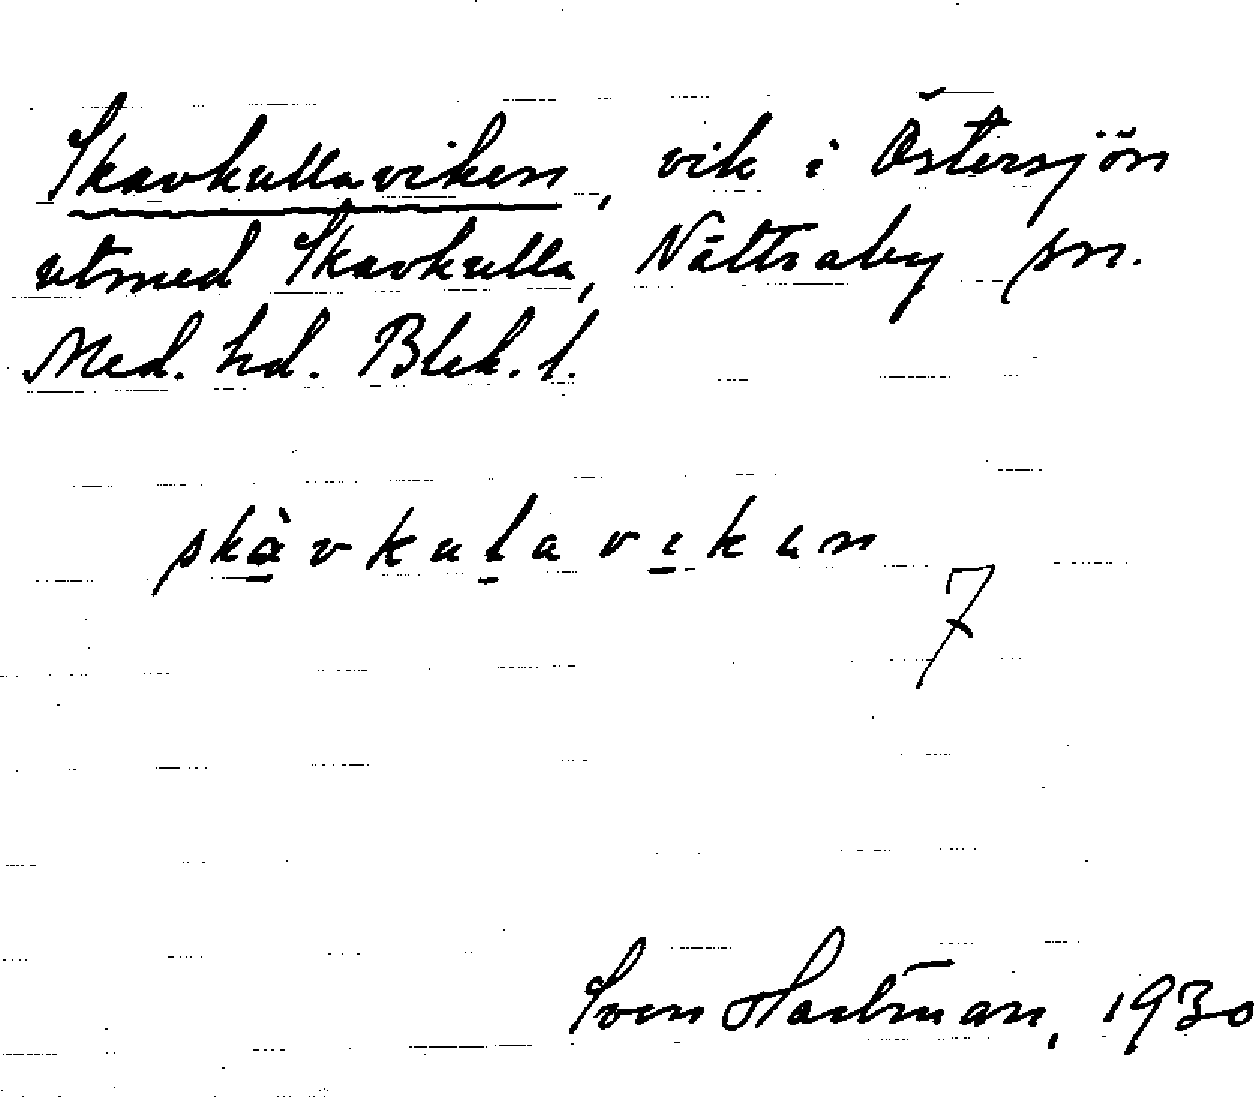 Skavkullaviken, vik i Östersjön
utmed Skavkulla, Nättraby sn.
Med. hd. Blek. l.
skàvkulavikun
7
Sven Hartman, 1930